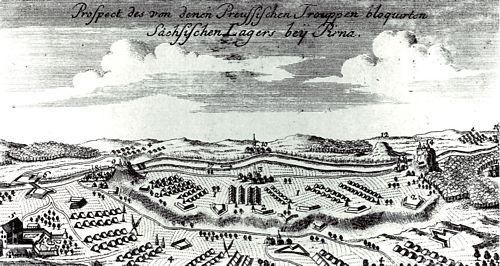 Prospect des von denen Preussischen Trouppen bloquirten
Sächsischen Lagers bey Pirna.